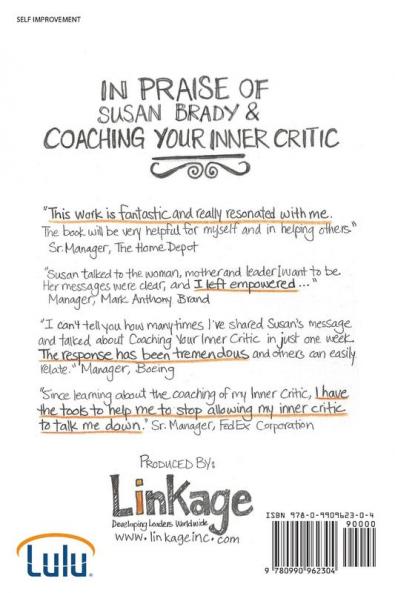 SELF IMPROVEMENT
IN PRAISE OF
SUSAN BRADY &
COACHING YOUR INNER CRITIC
"This work is fantastic and really resonated with me.
The book will be very helpful for myself and in helping others."
Sr. Manager, The Home Depot
"Susan talked to the woman, mother and leader I want to be.
Her messages were clear, and I left empowered..."
Manager, Mark Anthony Brand
"I can't tell you how many times I've shared Susan's message
and talked about Coaching Your Inner Critic in just one week.
The response has been tremendous and others can easily
relate." Manager, Boeing
"Since learning about the coaching of my Inner Critic, I have
the tools to help me to stop allowing my inner critic
to talk me down." Sr. Manager, FedEx Corporation
PRODUCED BY:
Linkage
Developing Leaders Worldwide
www.linkageinc.com
Lulu
ISBN 978-0-9909623-0-4
90000
9 780990 962304